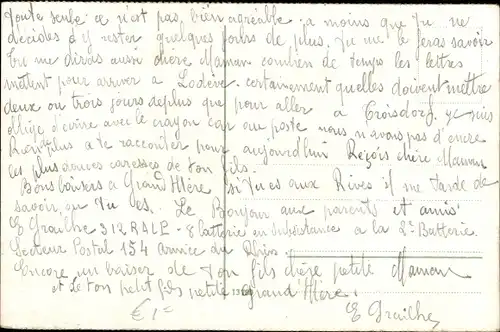 toute seule ce n'est pas bien agréable a moins que tu ne
décides d'y rester quelques jours de plus. Tu me le feras savoir
Tu me diras aussi chere Maman combien de temps les lettres
mettent pour arriver a Lodève. certainement quelles doivent mettre
deux ou trois jours de plus que pour aller a Troisdorf. je suis
obligé d'ecrire avec le crayon car au poste nous n'avons pas d'encre
Rien plus a te raconter pour aujourd'hui Reçois chère Maman
les plus douces caresses de ton fils.
Bons baisers a Grand Mère si tu es aux Rives il me tarde de
savoir ou tu es. Le Bonjour aux parents et amis
E Grailhe 312 RALP - 8 Batterie en subsistance a la 2e Batterie.
Secteur Postal 154 armée du Rhin
Encore un baiser de ton fils chère petite Maman
et de ton petit fils petite grand'Mère.
€ 1=
E Grailhe